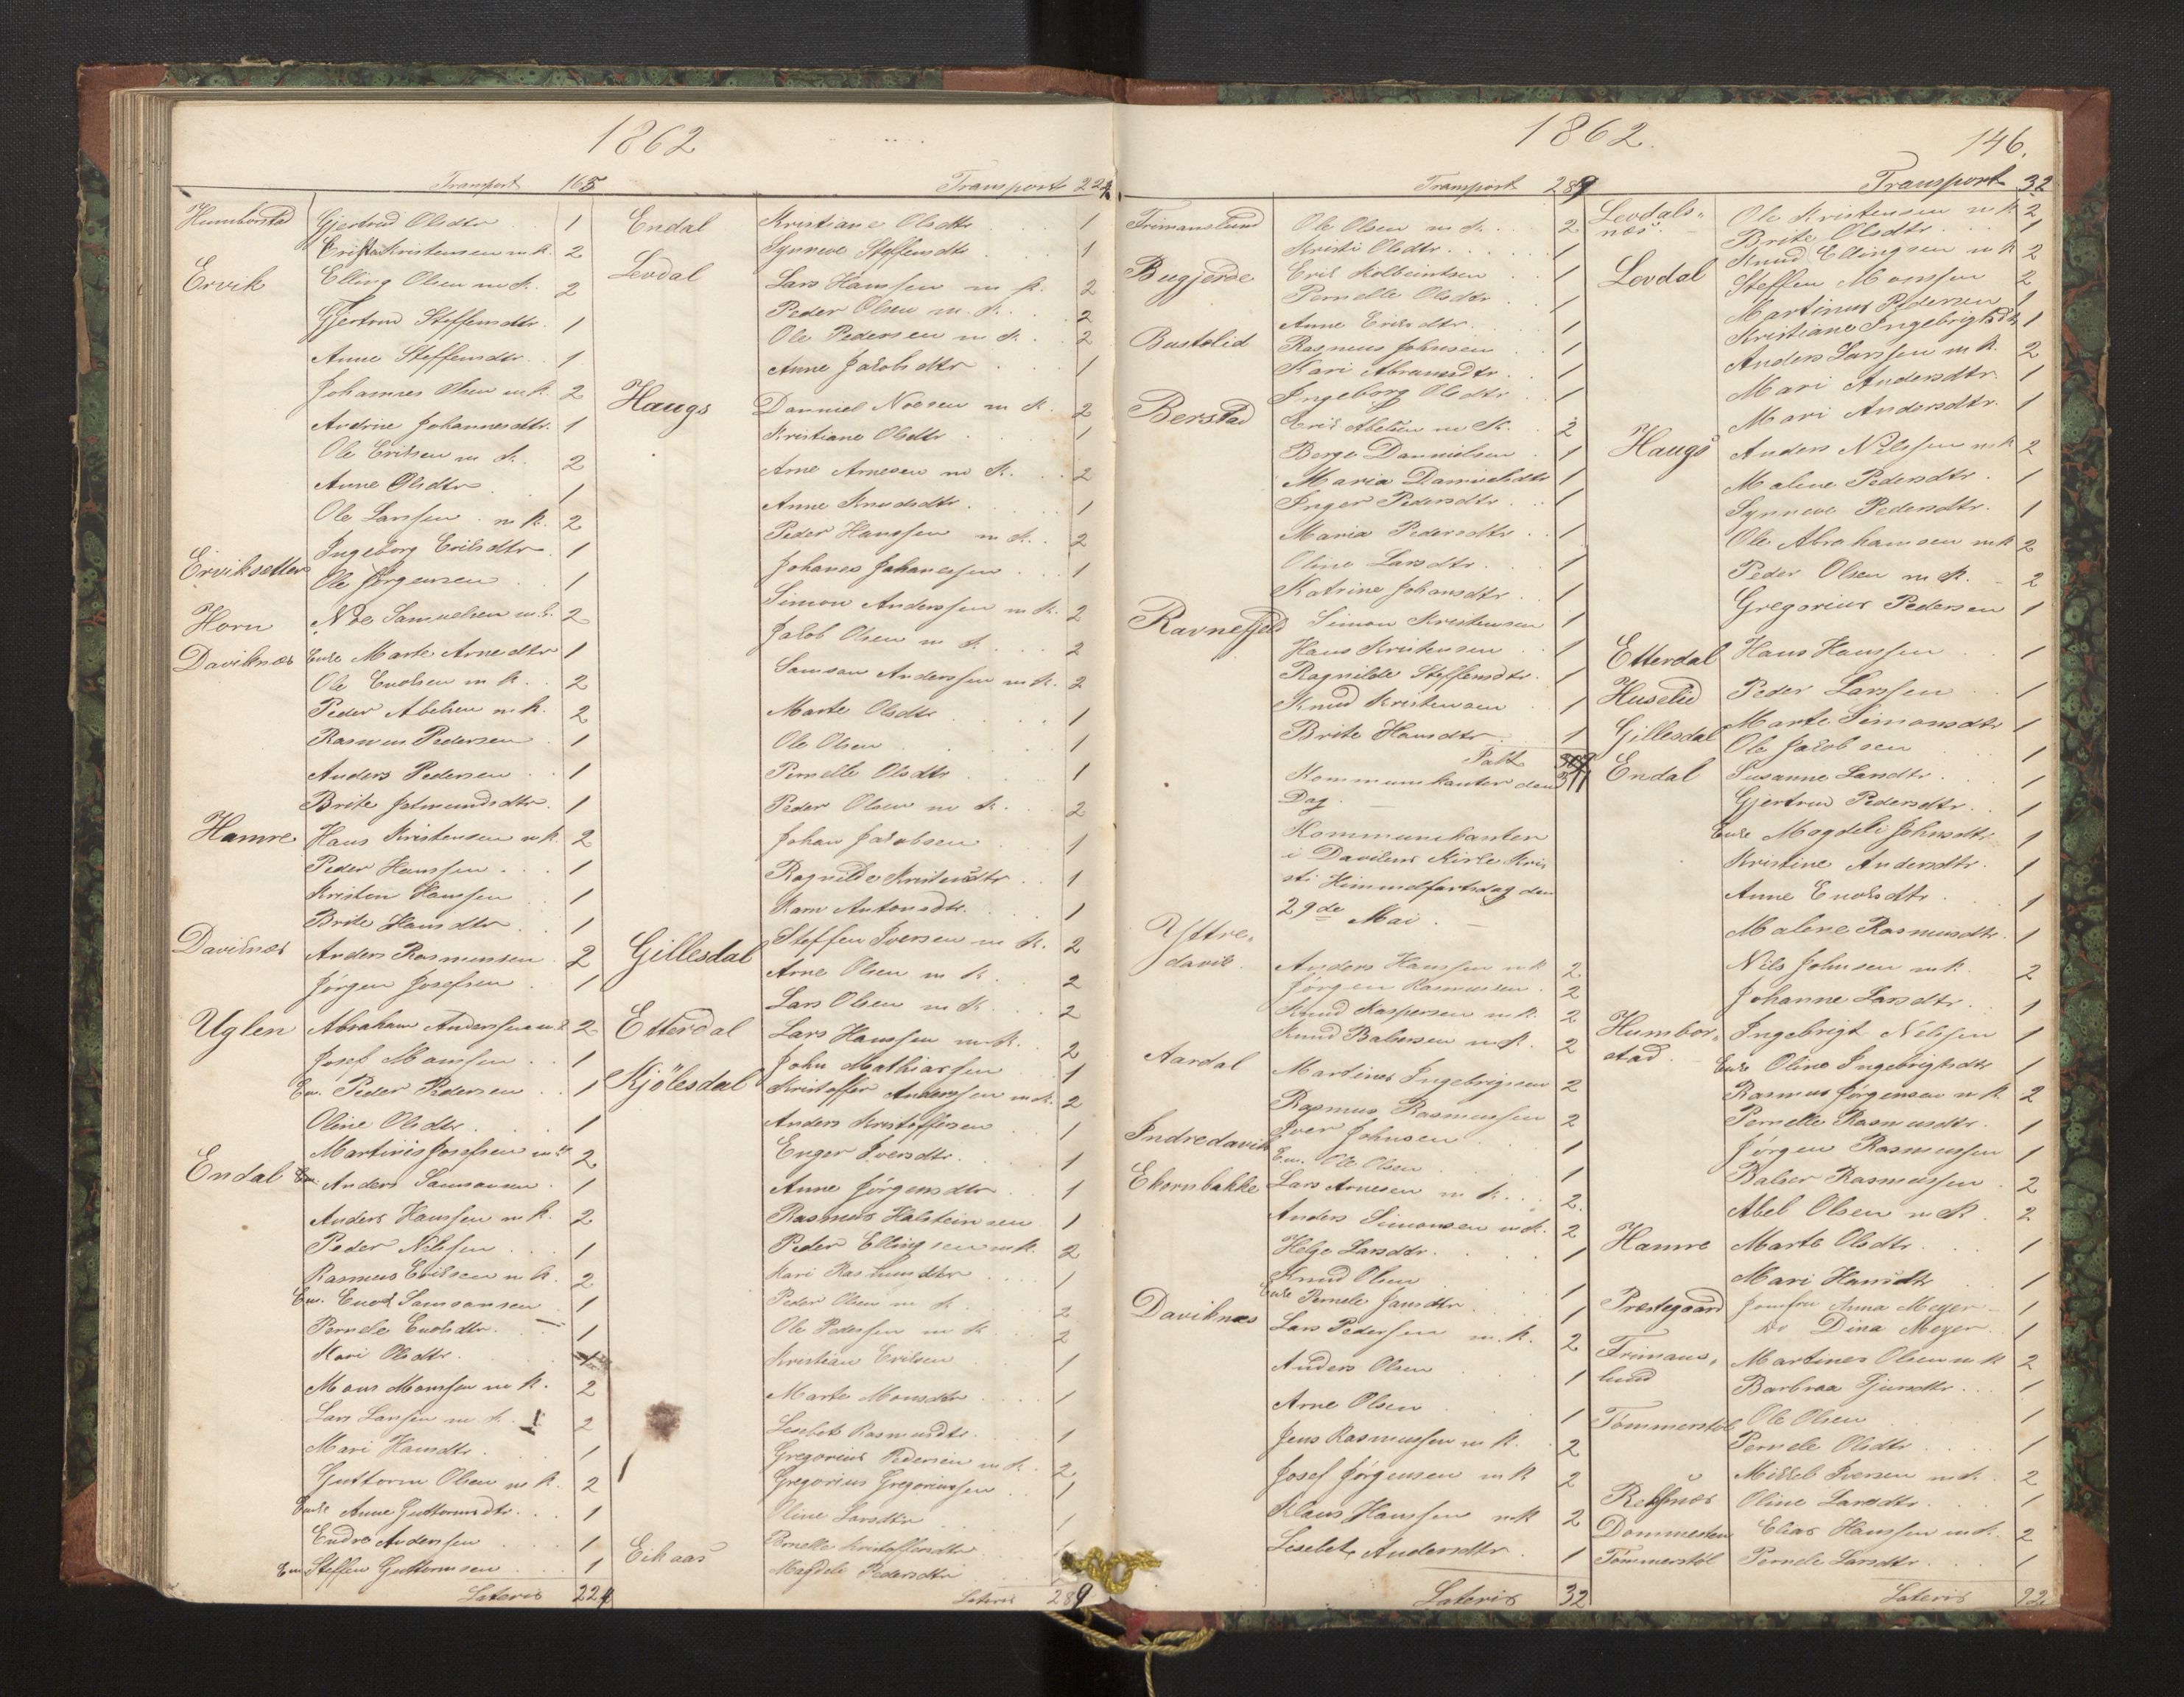 1862
Transport 165
Humborstad Gjertrud Olsdtr 1
Kristensen m K. 2
Ervik Elling Olsen m K. 2
Gjertrud Steffensdtr. 1
Anne Steffensdtr. 1
Johannes Olsen m K. 2
Andrine Johannesdtr. 1
Ole Eriksen m K. 2
Anne Olsdtr 1
Ole Larssen m K. 2
Ingeborg Eriksdtr. 1
Erviksetter Ole Jørgensen 1
Horn Noe Samuelsen m K. 2
Daviknæs Enke Marte Arnedtr 1
Ole Enoksen m K. 2
Peder Abelsen m K. 2
Rasmus Pedersen 1
Anders Pedersen 1
Brite Jetmundsdtr. 1
Hamre Hans Kristensen m K. 2
Peder Hanssen 1
Kristen Hanssen 1
Brite Hansdtr 1
Daviknæs Anders Rasmussen 2
Jørgen Josefsen 1
Uglen Abraham Anderssen m K 2
Josef Monssen 1
Em. Peder Pedersen 1
Oline Olsdtr. 1
Martinus Josefsen m K 2
Endal Em. Anders Samsonsen 1
Anders Hanssen m K. 2
Peder Nilssen 1
Rasmus Eriksen m K. 2
Em. Enok Samsonsen 1
Pernele Enoksdtr. 1
Kari Olsdtr. 1
Mons Monssen m K. 2
Lars Larssen m K. 2
Mari Hansdtr. 1
Guttorm Olsen m K. 2
Enke Anne Guttormsdtr. 1
Endre Anderssen 1
Em Steffen Guttormsen 1
Lateris 224
Transport 224
Endal Kristiane Olsdtr 1
Synneve Steffensdtr 1
Levdal Lars Hanssen m K. 2
Peder Olsen m K. 2
Ole Pedersen m K. 2
Anne Jakobsdtr 1
Haugs Danniel Noesen m K. 2
Kristiane Olsdtr 1
Arne Arnesen m K. 2
Anne Knudsdtr. 1
Peder Hanssen m K. 2
Johanes Johanessen 1
Simon Anderssen m K. 2
Jakob Olsen m K. 2
Samson Anderssen m K. 2
Marte Olsdtr 1
Ole Olsen 1
Pernelle Olsdtr 1
Peder Olsen m K. 2
Johan Jakobsen 1
Ragnilde Kristensdtr 1
Karn Antonsdtr. 1
Gillesdal Steffen Iversen m K. 2
Arne Olsen m K. 2
Lars Olsen m K. 2
Etterdal Lars Hanssen m K. 2
John Mathiassen 1
Kjölesdal Kristoffer Anderssen m K. 2
Anders Kristoffersen 1
Enger Iversdtr. 1
Anne Jörgensdtr 1
Rasmus Halsteinsen 1
Peder Ellingsen m K. 2
Kari Rasmusdtr 1
Peder Olsen m K. 2
Ole Pederssen m K. 2
Kristian Eriksen 1
Marte Monsdtr 1
Lisebet Rasmusdtr. 1
Gregorius Pedersen m K. 2
Gregorius Gregoriussen 1
Oline Larsdtr 1
Eikaas Pernelle Kristoffersdtr
Magdeli Pedersdtr
Lateris 289
1862. 146.
Transport 289
Frimanslund Ole Olsen m K. 2
Kristi Olsdtr. 1
Bugjerde Erik Kolbeintsen 1
Pernelle Olsdtr. 1
Anne Eriksdtr. 1
Bustelid Rasmus Johnsen 1
Kari Abramsdtr. 1
Ingeborg Olsdtr 1
Berstad Erik Abelsen m K. 2
Berge Dannielsen 1
Maria Danielsdtr 1
Inger Pedersdtr. 1
Maria Pedersdtr 1
Oline Larsdtr. 1
Katrine Johansdtr 1
Ravnefjeld Simon Kristensen 1
Hans Kristensen 1
Ragnilde Steffensdtr. 1
Knud Kristensen 1
Brite Hansdtr 1
Talt 311
Kommunikanter den
Dag.
Kommunikanter
i Davikens Kirke Kri
sti Himmelfartsdag den
29de Mai.
Yttre-
davik. Anders Hanssen m K 2
Jørgen Rasmussen 2
Knud Kaspersen m K. 2
Knud Balsersen m K. 2
Aardal Martines Ingebrigtsen 2
Rasmus Rasmussen 2
Indredavik Iver Johnsen 1
Em. Ole Olsen 1
Ekornbakke Lars Arnesen m K. 2.
Anders Simonsen m K. 2
Helge Larsdtr. 1
Knud Olsen 1
Enke Pernele Jansdtr 1
Daviknæs Lars Pederssen m. K. 2
Anders Olsen 1
Arne Olsen 1
Jens Rasmussen m K. 2
Josef Jörgensen m K 2
Klaus Hanssen m K 2
Lisebet Andersdtr. 1
Lateris 32
Transport 32
Levdals-
næs. Ole Kristensen m K 2
Brite Olsdtr. 1
Knud Ellingsen m K 2
Levdal Steffen Monssen 2
Martinus Pedersen 1
Kristiane Ingebrigtsdtr 1
Anders Larssen m K. 2
Mari Andersdtr. 1
Mari Andersdtr. 1
Haugs Anders Nilssen m K 2
Malene Pedersdtr 1
Synneve Pedersdtr. 1
Ole Abrahamsen m K 2
Peder Olsen m K. 2
Gregorius Pedersen 1
Etterdal Hans Hanssen 1
Huselid Peder Larssen 1
Gillesdal Marte Simonsdtr 1
Ole Jakobsen 1
Endal Susanne Larsdtr. 1
Gjertrud Pedersdtr. 1
Enke Magdeli Johnsdtr. 1
Kristine Andersdtr. 1
Anne Enoksdtr 1
Malene Rasmusdtr. 1
Nils Johnsen m K. 2
Johanne Larsdtr. 1
Humbor-
stad. Ingebrigt Nilssen 1
Enke Oline Ingebrigtsdtr 1
Rasmus Jørgensen m K 2
Pernelle Rasmusdtr. 1
Jørgen Rasmussen 1
Balser Rasmussen 2
Abel Olsen m K 2
Hamre Marte Olsdtr. 1
Mari Hansdtr 1
Prestegaard Jomfru Anna Meyer 1
do Dina Meyer 1
Frimans-
lund Martines Olsen m K 2
Barbraa Gjursdtr. 1
Tømmerstøl Ole Olsen 1
Pernele Olsdtr. 1
Mikkel Iversen m K. 2
Oline Larsdtr. 1
Dommesten Elias Hanssen m K. 2
Tømmerstøl Pernele Larsdtr. 1
Lateris 92